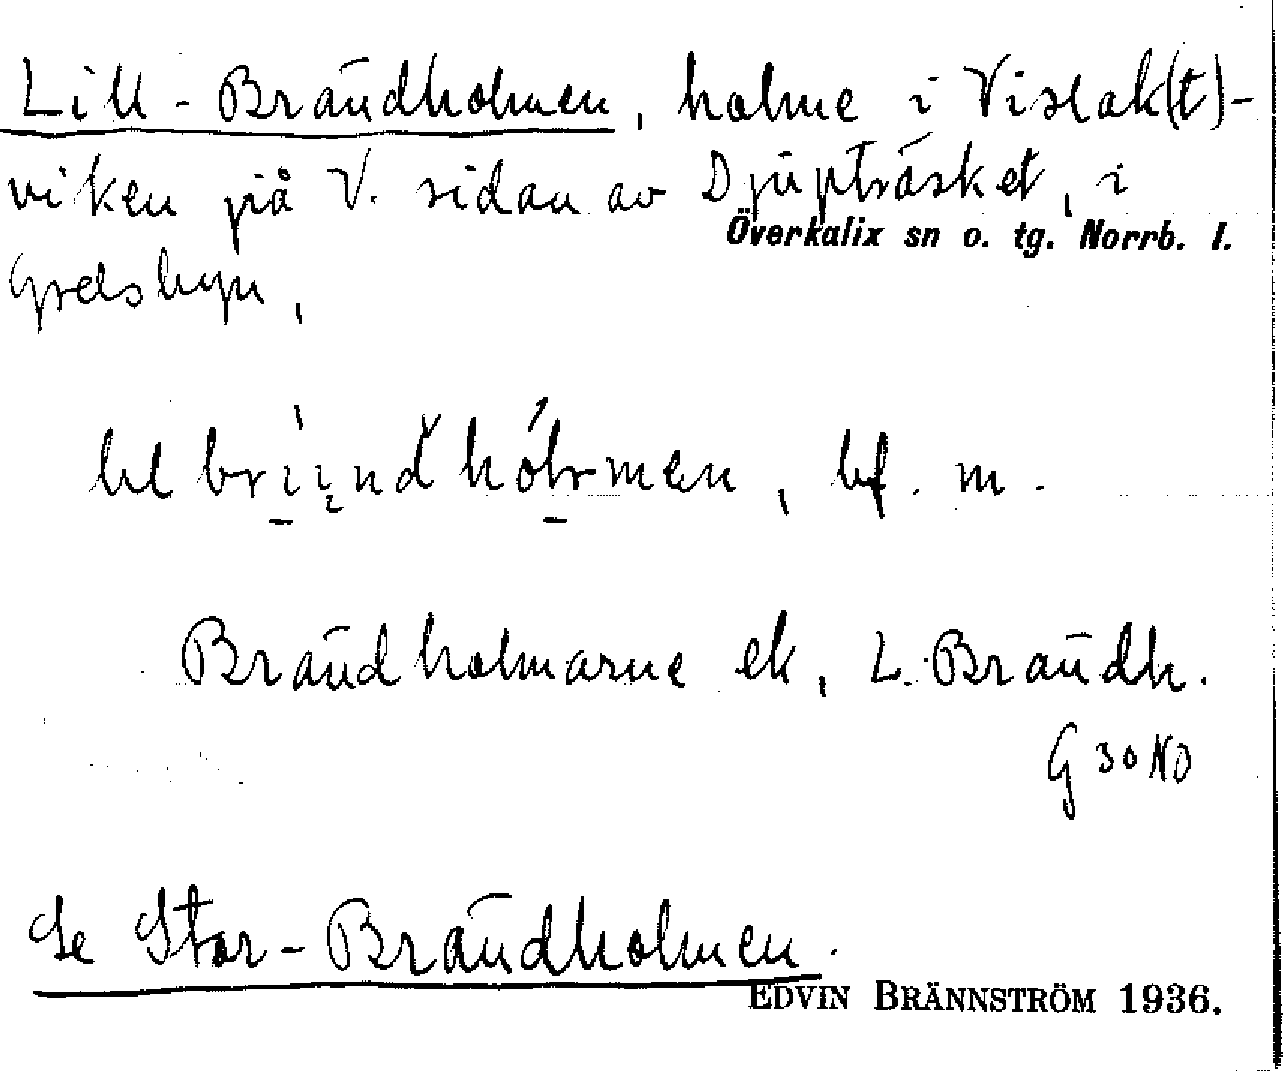 Lill-Brändholmen, holme i Vislak(t)-
viken på V. sidan av Djupträsket, i
Överkalix sn o. tg. Norrb. l.
Grelsbyn,
bf. m.
Brändholmarne ek, L. Brändh.
G 30 NO
Se Stor-Brändholmen.
EDVIN BRÄNNSTRÖM 1936.